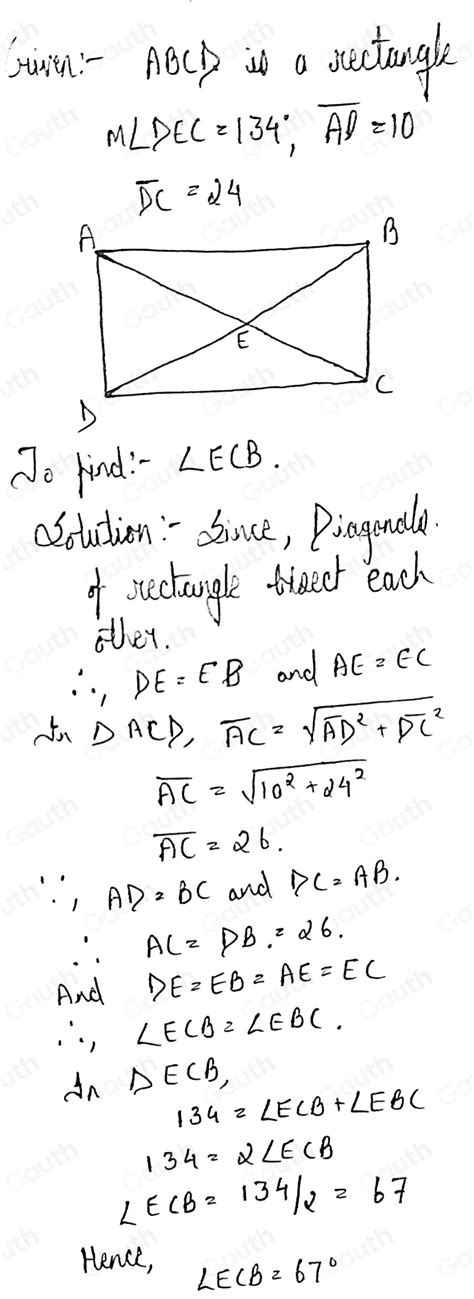 Given:- ABCD is a rectangle
M∠DEC = 134°, A̅D̅ = 10
D̅C̅ = 24
A
B
E
D
C
To find:- ∠ECB.
Solution:- Since, Diagonals.
of rectangle bisect each
other.
∴, DE = EB and AE = EC
In △ ACD, A̅C̅ = √A̅D̅² + D̅C̅²
A̅C̅ = √10² + 24²
A̅C̅ = 26.
∵, AD = BC and DC = AB.
∴ AC = DB. = 26.
And DE = EB = AE = EC
∴, ∠ECB = ∠EBC.
In △ ECB,
134 = ∠ECB + ∠EBC
134 = 2∠ECB
∠ECB = 134/2 = 67
Hence, ∠ECB = 67°